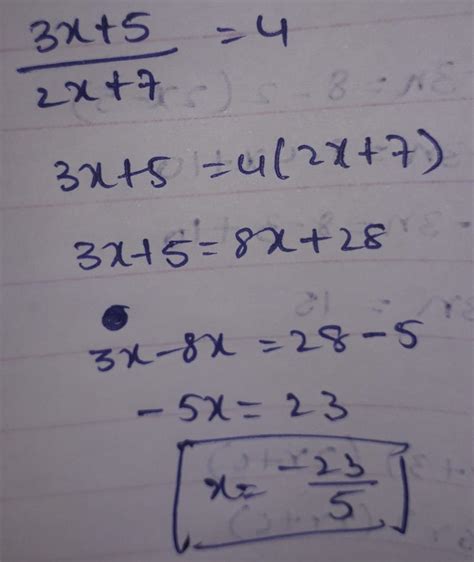 3x+5 / 2x+7 = 4
3x+5 = 4(2x+7)
3x+5 = 8x+28
3x-8x = 28-5
-5x = 23
x = -23/5